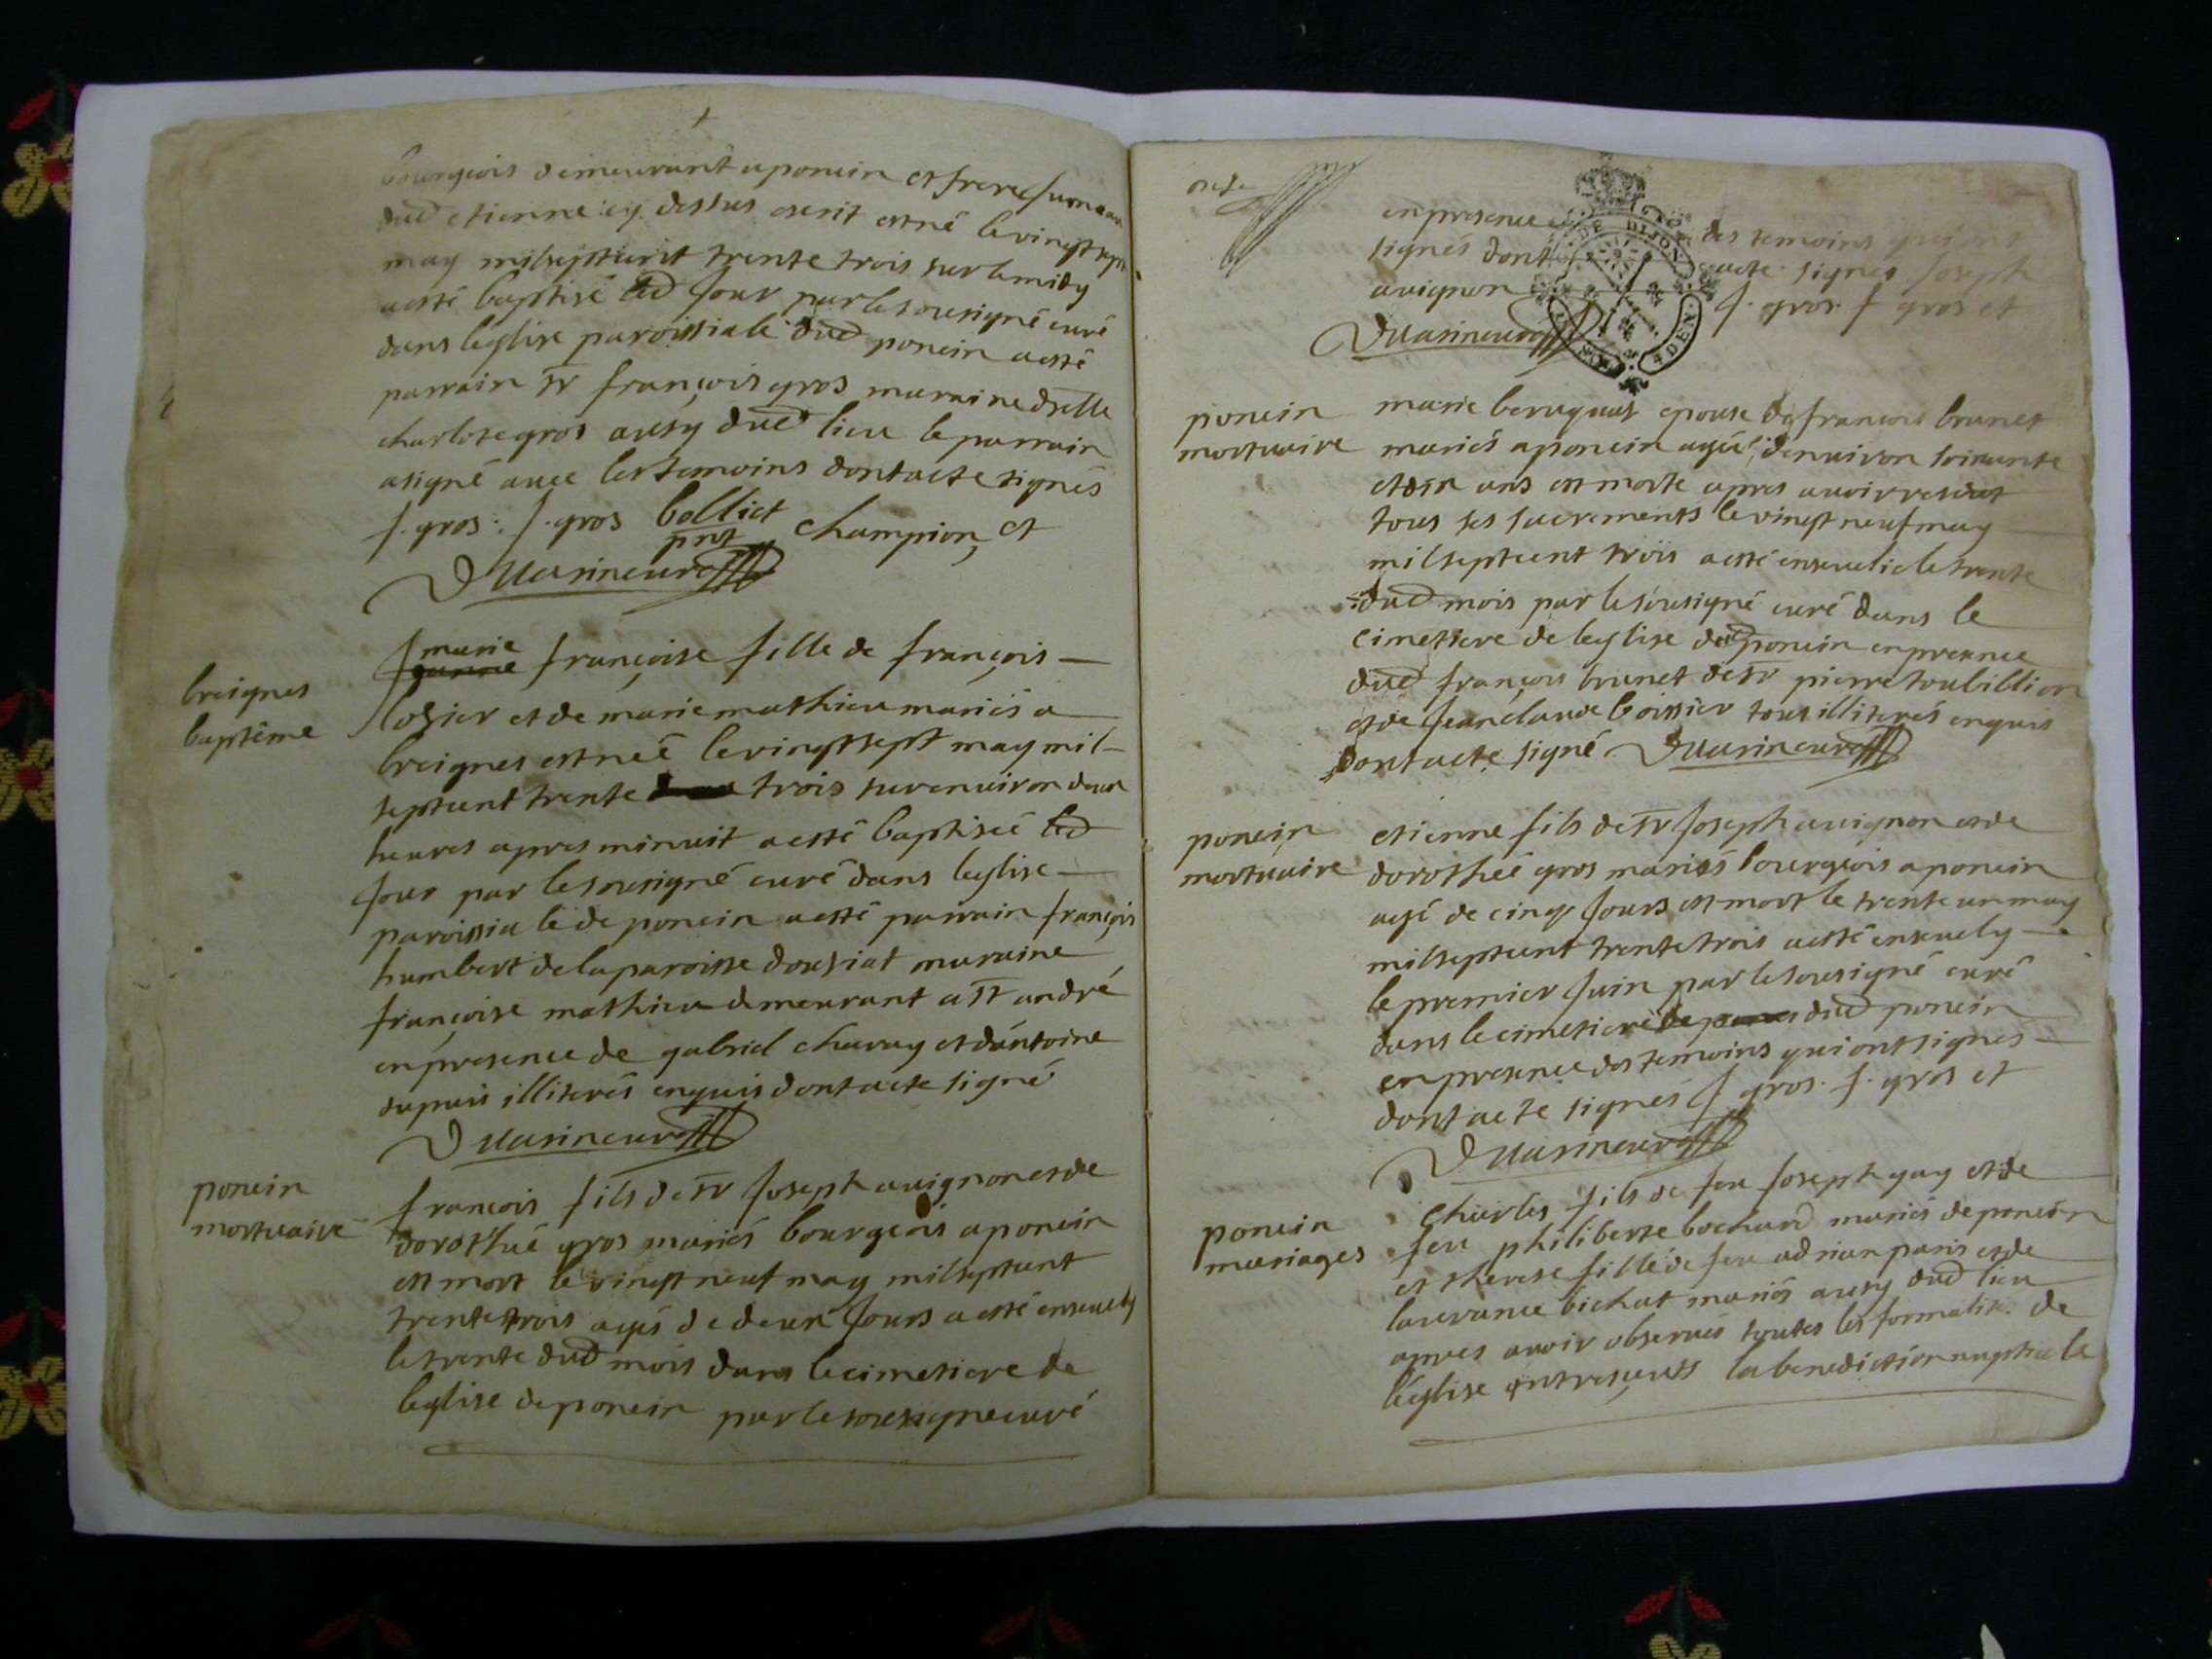 bourgeois demeurant a poncin et frere Jumeau
dud etienne cy dessus escrit est né le vingt sept
may mil sept cent trente trois sur le midy
a esté baptisé led Jour par le sousigné curé
dans leglise paroissiale dud poncin a esté
parrain sr françois gros maraine dlle
charlote gros ausy dud lieu le parrain
a signé avec les temoins dont acte signés
f. gros. J. gros bolliet champion et
pnt
Duasineur
breignes
baptême
marie
Jeanne françoise fille de françois
losier et de marie mathieu mariés a
breignes est neé le vingt sept may mil
sept cent trente trois sur enuiron deux
heures apres minuit a esté baptiseé led
Jour par le sousigné curé dans leglise
paroissiale de poncin a esté parrain françois
humbert de la paroisse dousiat maraine
françoise mathieu demeurant a st andré
en presence de gabriel charuy et dántoine
dupuis illiterés enquis dont acte signé
Duasineur
poncin
mortuaire
francois fils de sr Joseph auignon et de
dorothée gros mariés bourgeois a poncin
est mort le vingt neuf may mil sept cent
trente trois agés de deux Jours a esté enseuely
le trente dud mois dans le cimetiere de
leglise de poncin par le sousigne curé
onze
en presence des temoins qui ont
signés dont acte signés Joseph
auignon J. gros. f gros et
Duasineur
DE DIJON
4 DEN
poncin
mortuaire
marie beruquat epouse de francois brunet
mariés a poncin ageé denuiron soixante
et dix ans est morte apres auoir resçut
tous ses sacrements le vingt neuf may
mil sept cent trois a esté enseuelie le trente
dud mois par le sousigné curé dans le
cimetiere de leglise dud poncin en presence
dud françois brunet de sr pierre toubillion
et de Jean claude boissier tous illiterés enquis
dont acte signé. Duasineur
poncin
mortuaire
etienne fils de sr Joseph auignon et de
dorothée gros mariés bourgeois a poncin
agé de cinq Jours est mort le trente un may
mil sept cent trente trois a esté enseuely
le premier Juin par le sousigné curé
dans le cimetiere dud poncin
en presence des temoins qui ont signés
dont acte signés J gros. f. gros et
Duasineur
poncin
mariages
Charles fils de feu Joseph guy et de
feu philiberte bochard mariés de poncin
et therese fille de feu adrian paris et de
laurance bichat mariés ausy dud lieu
apres auoir obserués toutes les formalités de
l'église ont resçeuts la benediction nuptiale